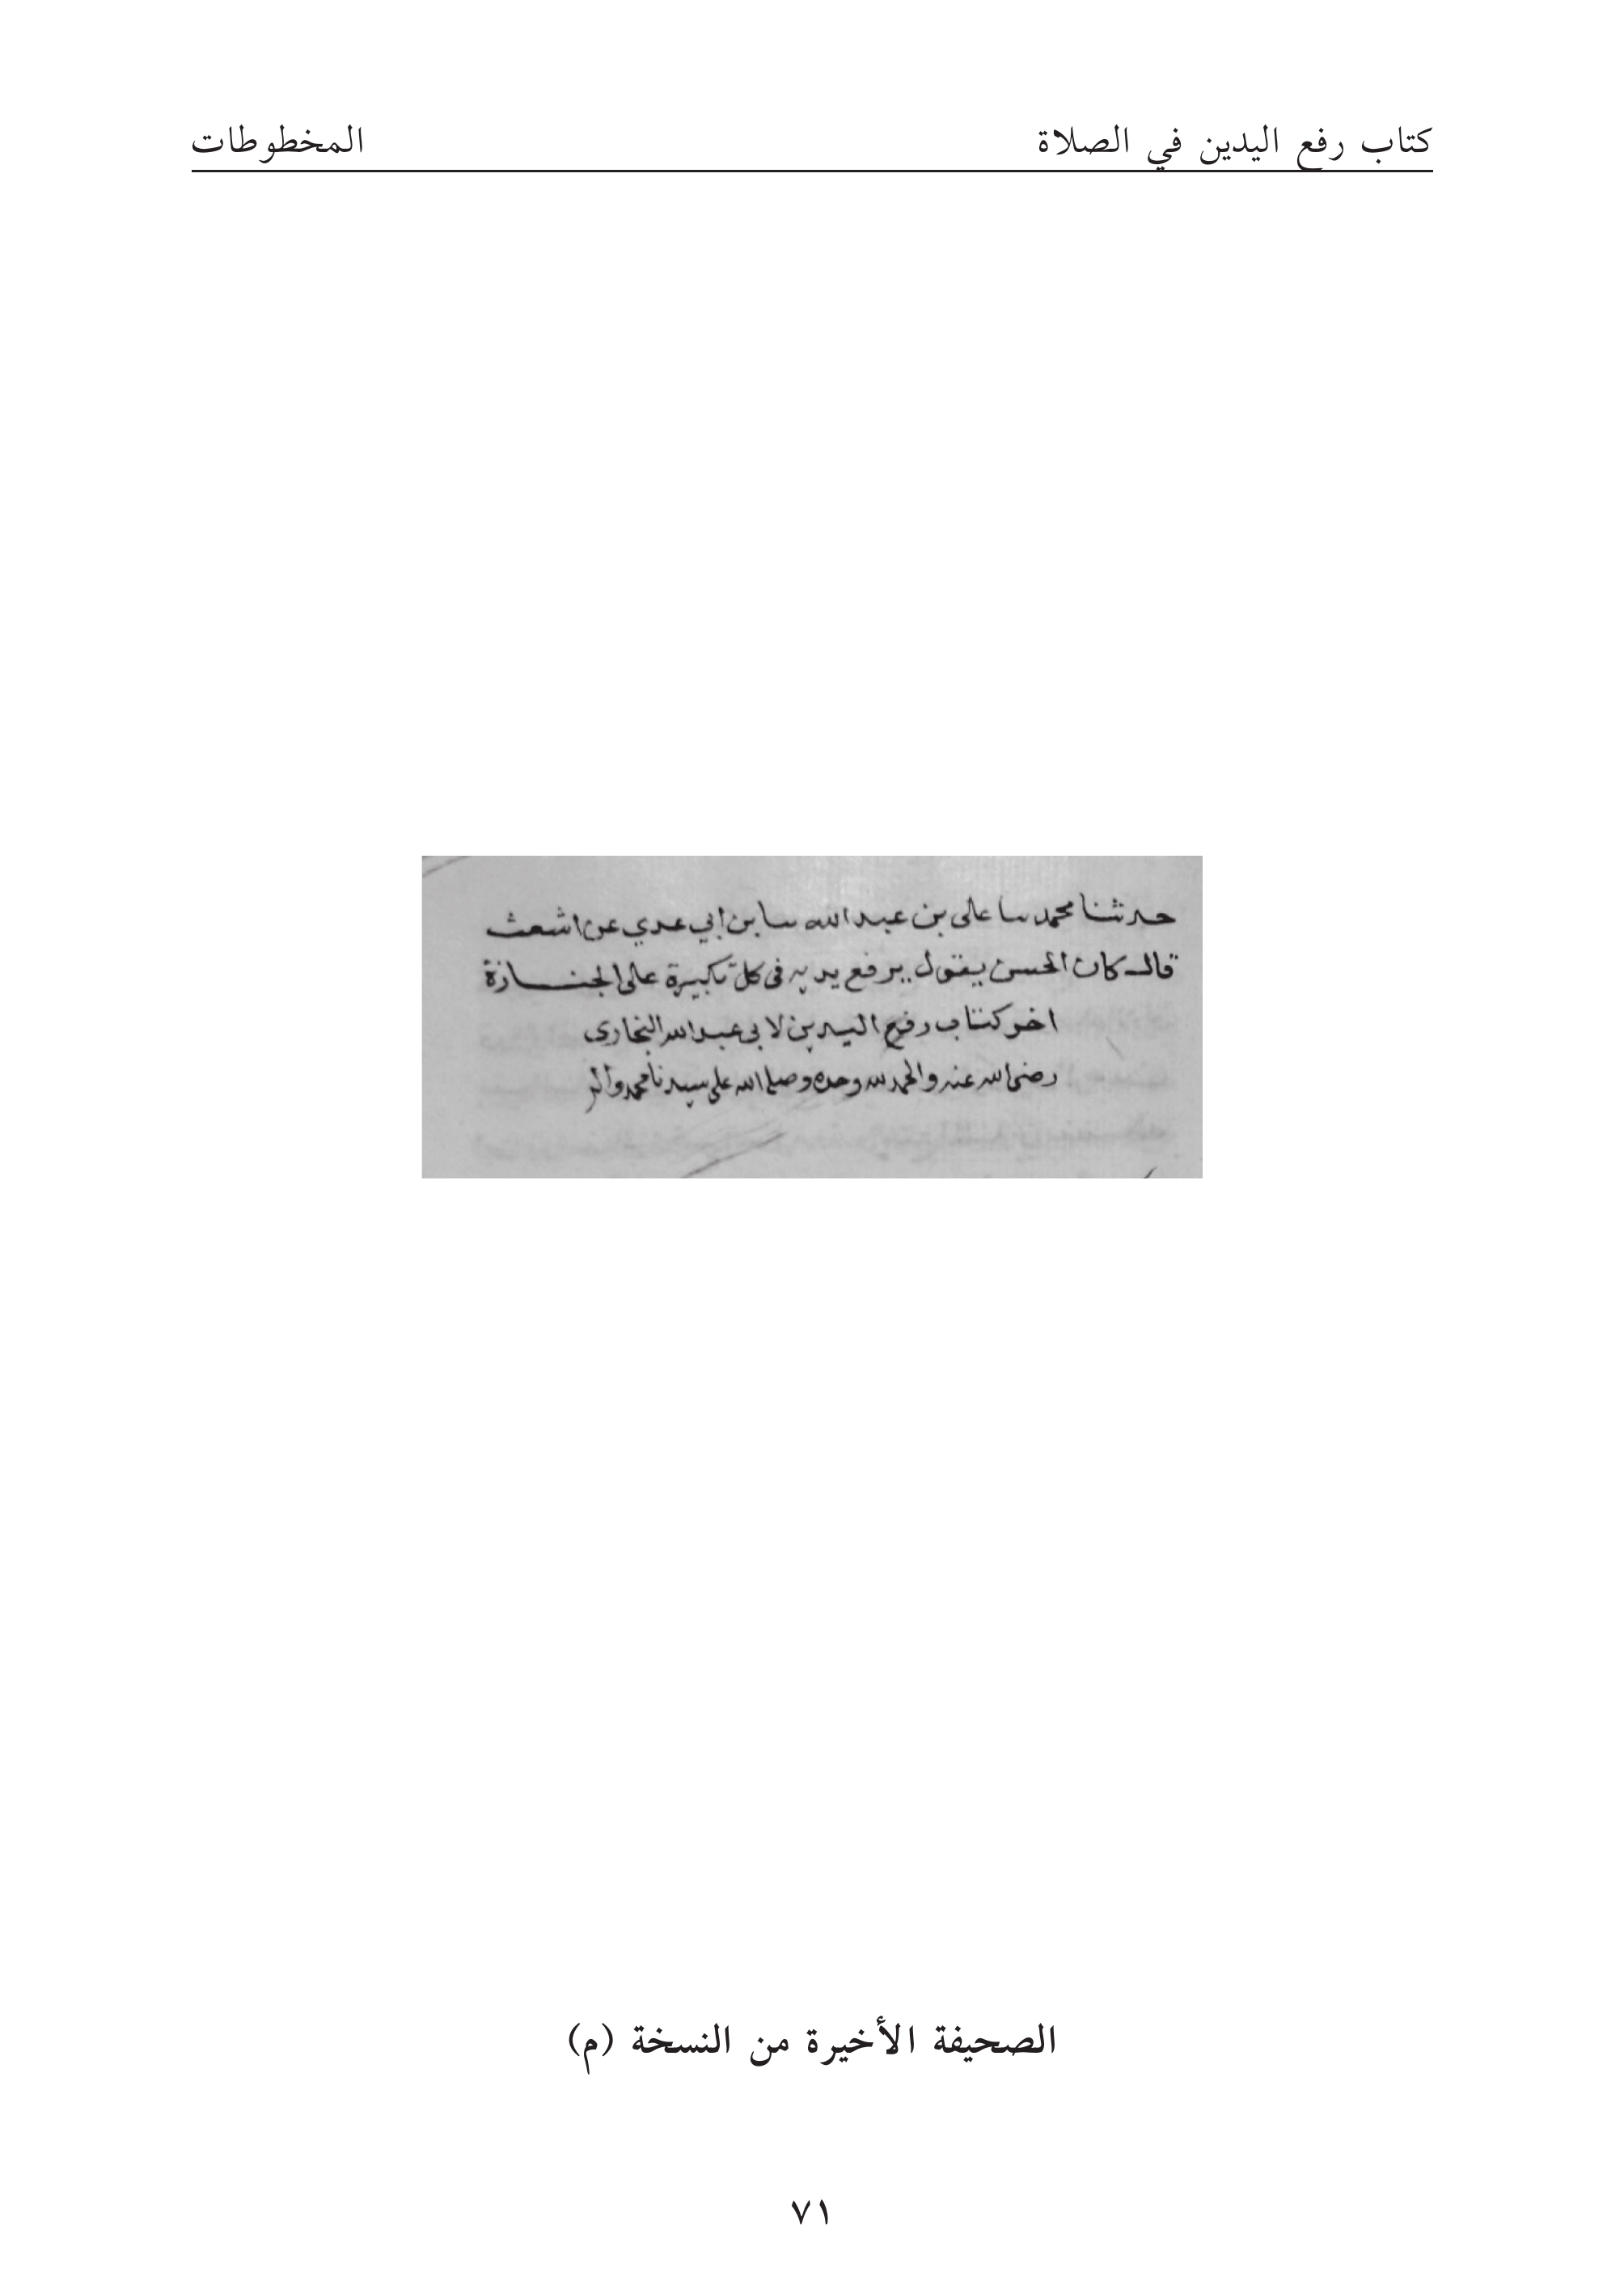 كتاب رفع اليدين في الصلاة
المخطوطات
حدثنا محمد سا على بن عبد الله سا بن ابي عدي عن اشعث
قال كان الحسن يقول يرفع يديه فى كل تكبيرة على الجنازة
اخر كتاب رفع اليدين لابى عبد الله البخارى
رضى الله عنه والحمد لله وحده وصلى الله على سيدنا محمد واله
الصحيفة الأخيرة من النسخة (م)
٧١